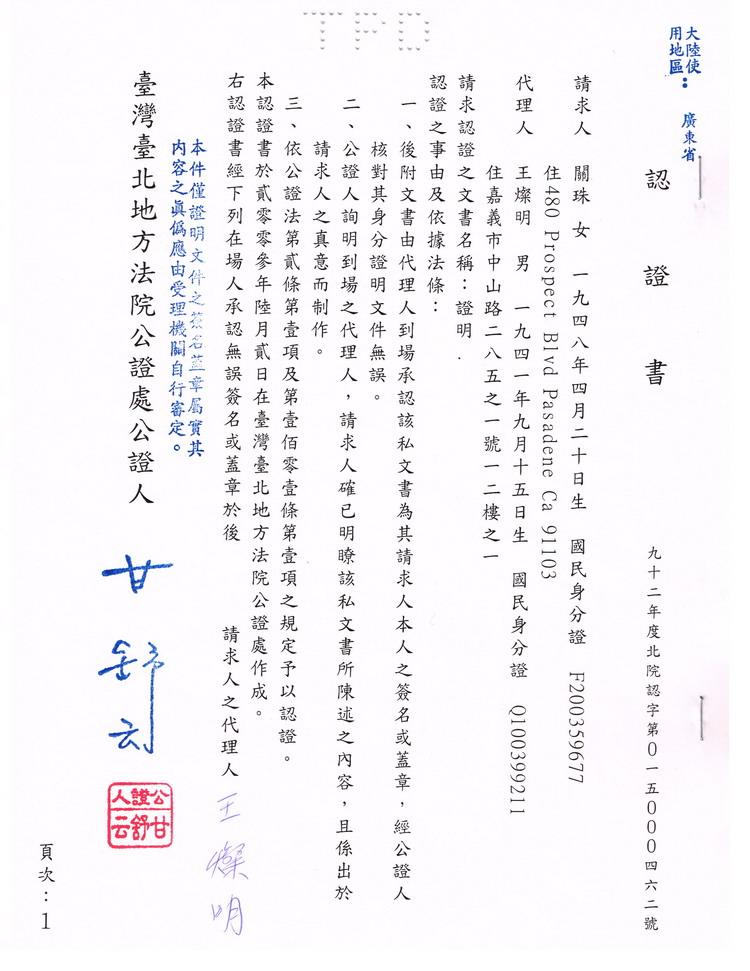 TPD
大陸使
用地區：
廣東省
認證書
九十二年度北院認字第0一五000四六二號
請求人 關珠 女 一九四八年四月二十日生 國民身分證 F200359677
住480 Prospect Blvd Pasadene Ca 91103
代理人 王燦明 男 一九四一年九月十五日生 國民身分證 Q100399211
住嘉義市中山路二八五之一號一二樓之一
請求認證之文書名稱：證明．
認證之事由及依據法條：
一、後附文書由代理人到場承認該私文書為其請求人本人之簽名或蓋章，經公證人
核對其身分證明文件無誤。
二、公證人詢明到場之代理人，請求人確已明瞭該私文書所陳述之內容，且係出於
請求人之真意而制作。
三、依公證法第貳條第壹項及第壹佰零壹條第壹項之規定予以認證。
本認證書於貳零零參年陸月貳日在臺灣臺北地方法院公證處作成。
右認證書經下列在場人承認無誤簽名或蓋章於後
請求人之代理人 王燦明
本件僅證明文件之簽名蓋章屬實其
內容之真偽應由受理機關自行審定。
臺灣臺北地方法院公證處公證人
甘舒云
公證人
甘舒云
頁次：1